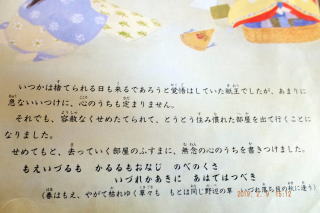 いつかは捨てられる日も来るであろうと覚悟はしていた祇王でしたが、あまりに
急ないいつけに、心のうちも定まりません。
それでも、容赦なくせめたてられて、とうとう住み慣れた部屋を出て行くことに
なりました。
せめてもと、去っていく部屋のふすまに、無念の心のうちを書きつけました。
もえいづるも かるるもおなじ のべのくさ
いづれかあきに あはではつべき
(春はもえ、やがて枯れゆく草々も もとは同じ野辺の草 いづれ落ち目の秋に逢う)
2019. 2. 9 15:12